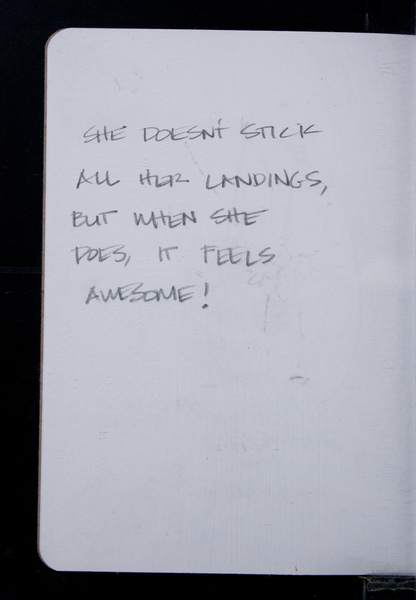 SHE DOESN'T STICK
ALL HER LANDINGS,
BUT WHEN SHE
DOES, IT FEELS
AWESOME!